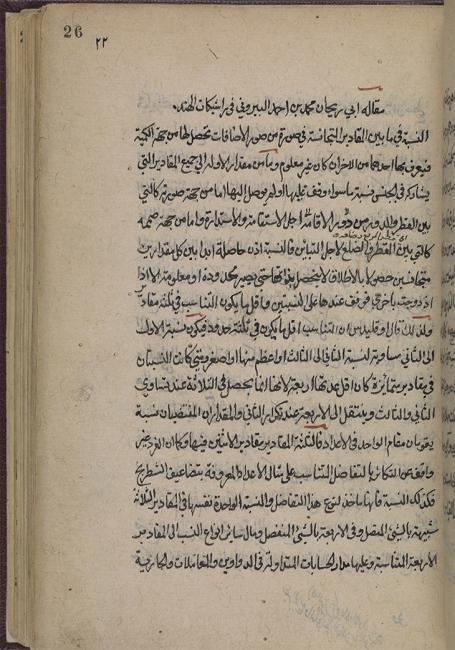 26
٢٢
مقاله ابي ريحان محمد بن احمد البيروني في راشيكات الهند.
النسبة في ما بين المقادير المتجانسة في صورة من صور الاضافات تحصل لها من جهة الكمية
فيعرف بها احدهما من الآخر ان كان غير معلوم و من مقدار الاول الى جميع المقادير التي
يشاركه في الجنس نسبة ما سواء وقف عليها او لم يوصل اليها اما من جهة صورته كالتي
بين القطر والدور من اجل الاستقامة والاستدارة واما من جهة
كالتي بين القطر والضلع لاجل التباين فالنسبة اذن حاصلة ابدا بين كل مقدارين
متجانسين حصولا بالاطلاق لا يتحصل حتى يصير محدودة او معلومة الا اذا
اذ دوجت باخرى فوقف عندها على النسبتين واقل ما يكون التناسب في ثلثة مقادير
ولذلك قال اوقليدس ان التناسب اقل ما يكون في ثلثة حدود فيكون نسبة الاول
الى الثاني مساوية لنسبة الثاني الى الثالث او اعظم منها او اصغر ومتى كانت النسبتان
في مقادير متمايزة كان اقل عدتها اربعة لانها انما يحصل في الثلاثة عند تساوى
الثاني والثالث وينتقل الى الاربعة عند تكرار الثاني والمقداران المنتصبان نسبة
يقومان مقام الواحد في الاعداد فالثلثة المقادير مقادير الاثنين فيها وكما ان الفرد غير
واقف عن التكاثر بالتفاضل المتناسب على مثال الاعداد المعروفة بتضاعيف الشطرنج
فكذلك النسبة فانها نوع هذا التفاضل والنسبة الواحدة نفسها في المقادير الثلاثة
شبيهة بالشئ المتصل وفي الاربعة بالشئ المنفصل ومال سائر انواع النسب الى المقادير
الاربعة المتناسبة وعليها مدار الحسابات المتداولة في الدواوين والمعاملات والجارية